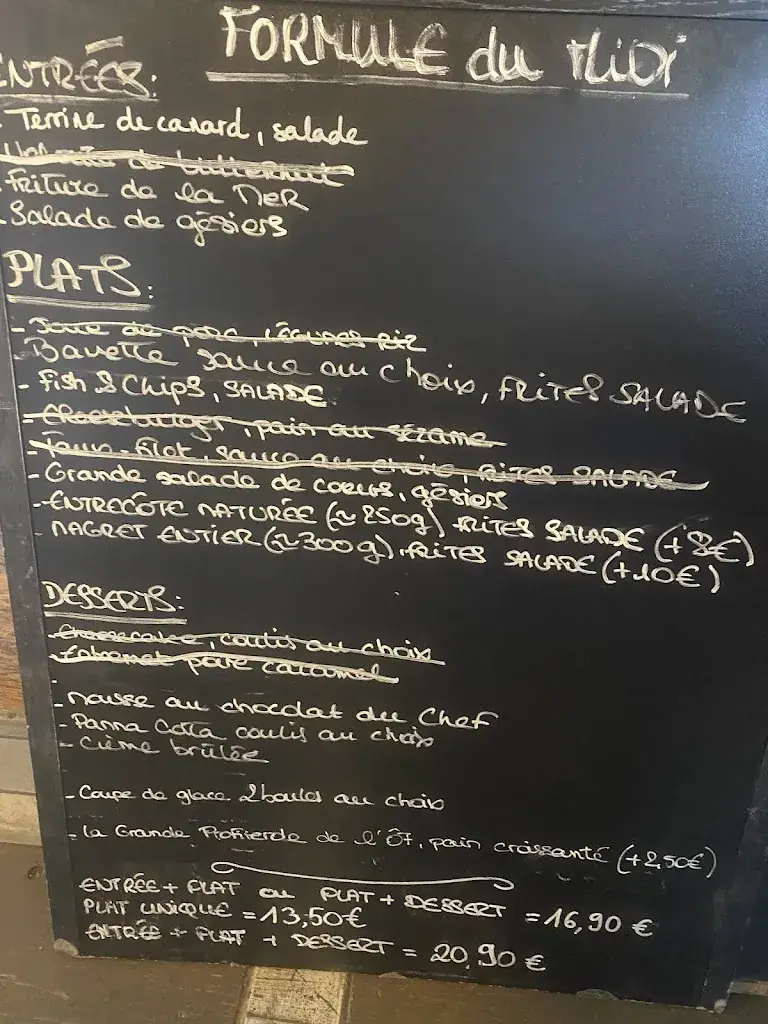 FORMULE du Midi
ENTRÉES:
- Terrine de canard, salade
de butternut
- Friture de la MER
- Salade de gésiers
PLATS:
- Joue de porc, LÉGUMES RIZ
- Bavette sauce au choix, FRITES SALADE
- Fish & Chips, SALADE
- Cheeseburger, pain au sézame
- Faux-filet, sauce au choix, FRITES SALADE
- Grande salade de coeurs, gésiers
- ENTRECÔTE NATURÉE (~250g) FRITES SALADE (+8€)
- MAGRET ENTIER (~300g), FRITES SALADE (+10€)
DESSERTS:
- Cheesecake, coulis au choix
- poire caramel
-
- Mousse au chocolat du Chef
- Panna Cotta coulis au choix
- Crème brûlée
- Coupe de glace 2 boules au choix
- La Grande Profiterole de l'ÔT, pain croissanté (+2,50€)
ENTRÉE + PLAT ou PLAT + DESSERT = 16,90 €
PLAT UNIQUE = 13,50€
ENTRÉE + PLAT + DESSERT = 20,90 €